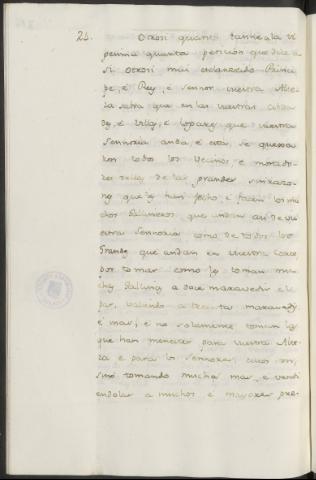 24. Otrosi quanto tanne a la vi
pesima quarta peticion que dice a
si otrosi mui esclarecido Princi
pe, é Rey, é sennor vuestra Alte
za sabra que en las vuestras cibda
des, é villas, é logares que vuestra
sennoria anda, é está, se quexa
ron todos los Vecinos é morado
res dellas de las grandes sinrazo
nes que les han fecho é facen los mu
chos Gallineros que andan asi de vu
estra Sennoria como de todos los
Grandes que andan en vuestra Corte
por tomar como les toman mu
chas gallinas a doce maravedis el
par, valiendo a treinta maravedis
é mas; é no solamente toman las
que han menester para vuestra Alte
za é para los sennores, cuios son,
sino tomando muchas mas, é vendi
endolas a muchos é mayores pre-